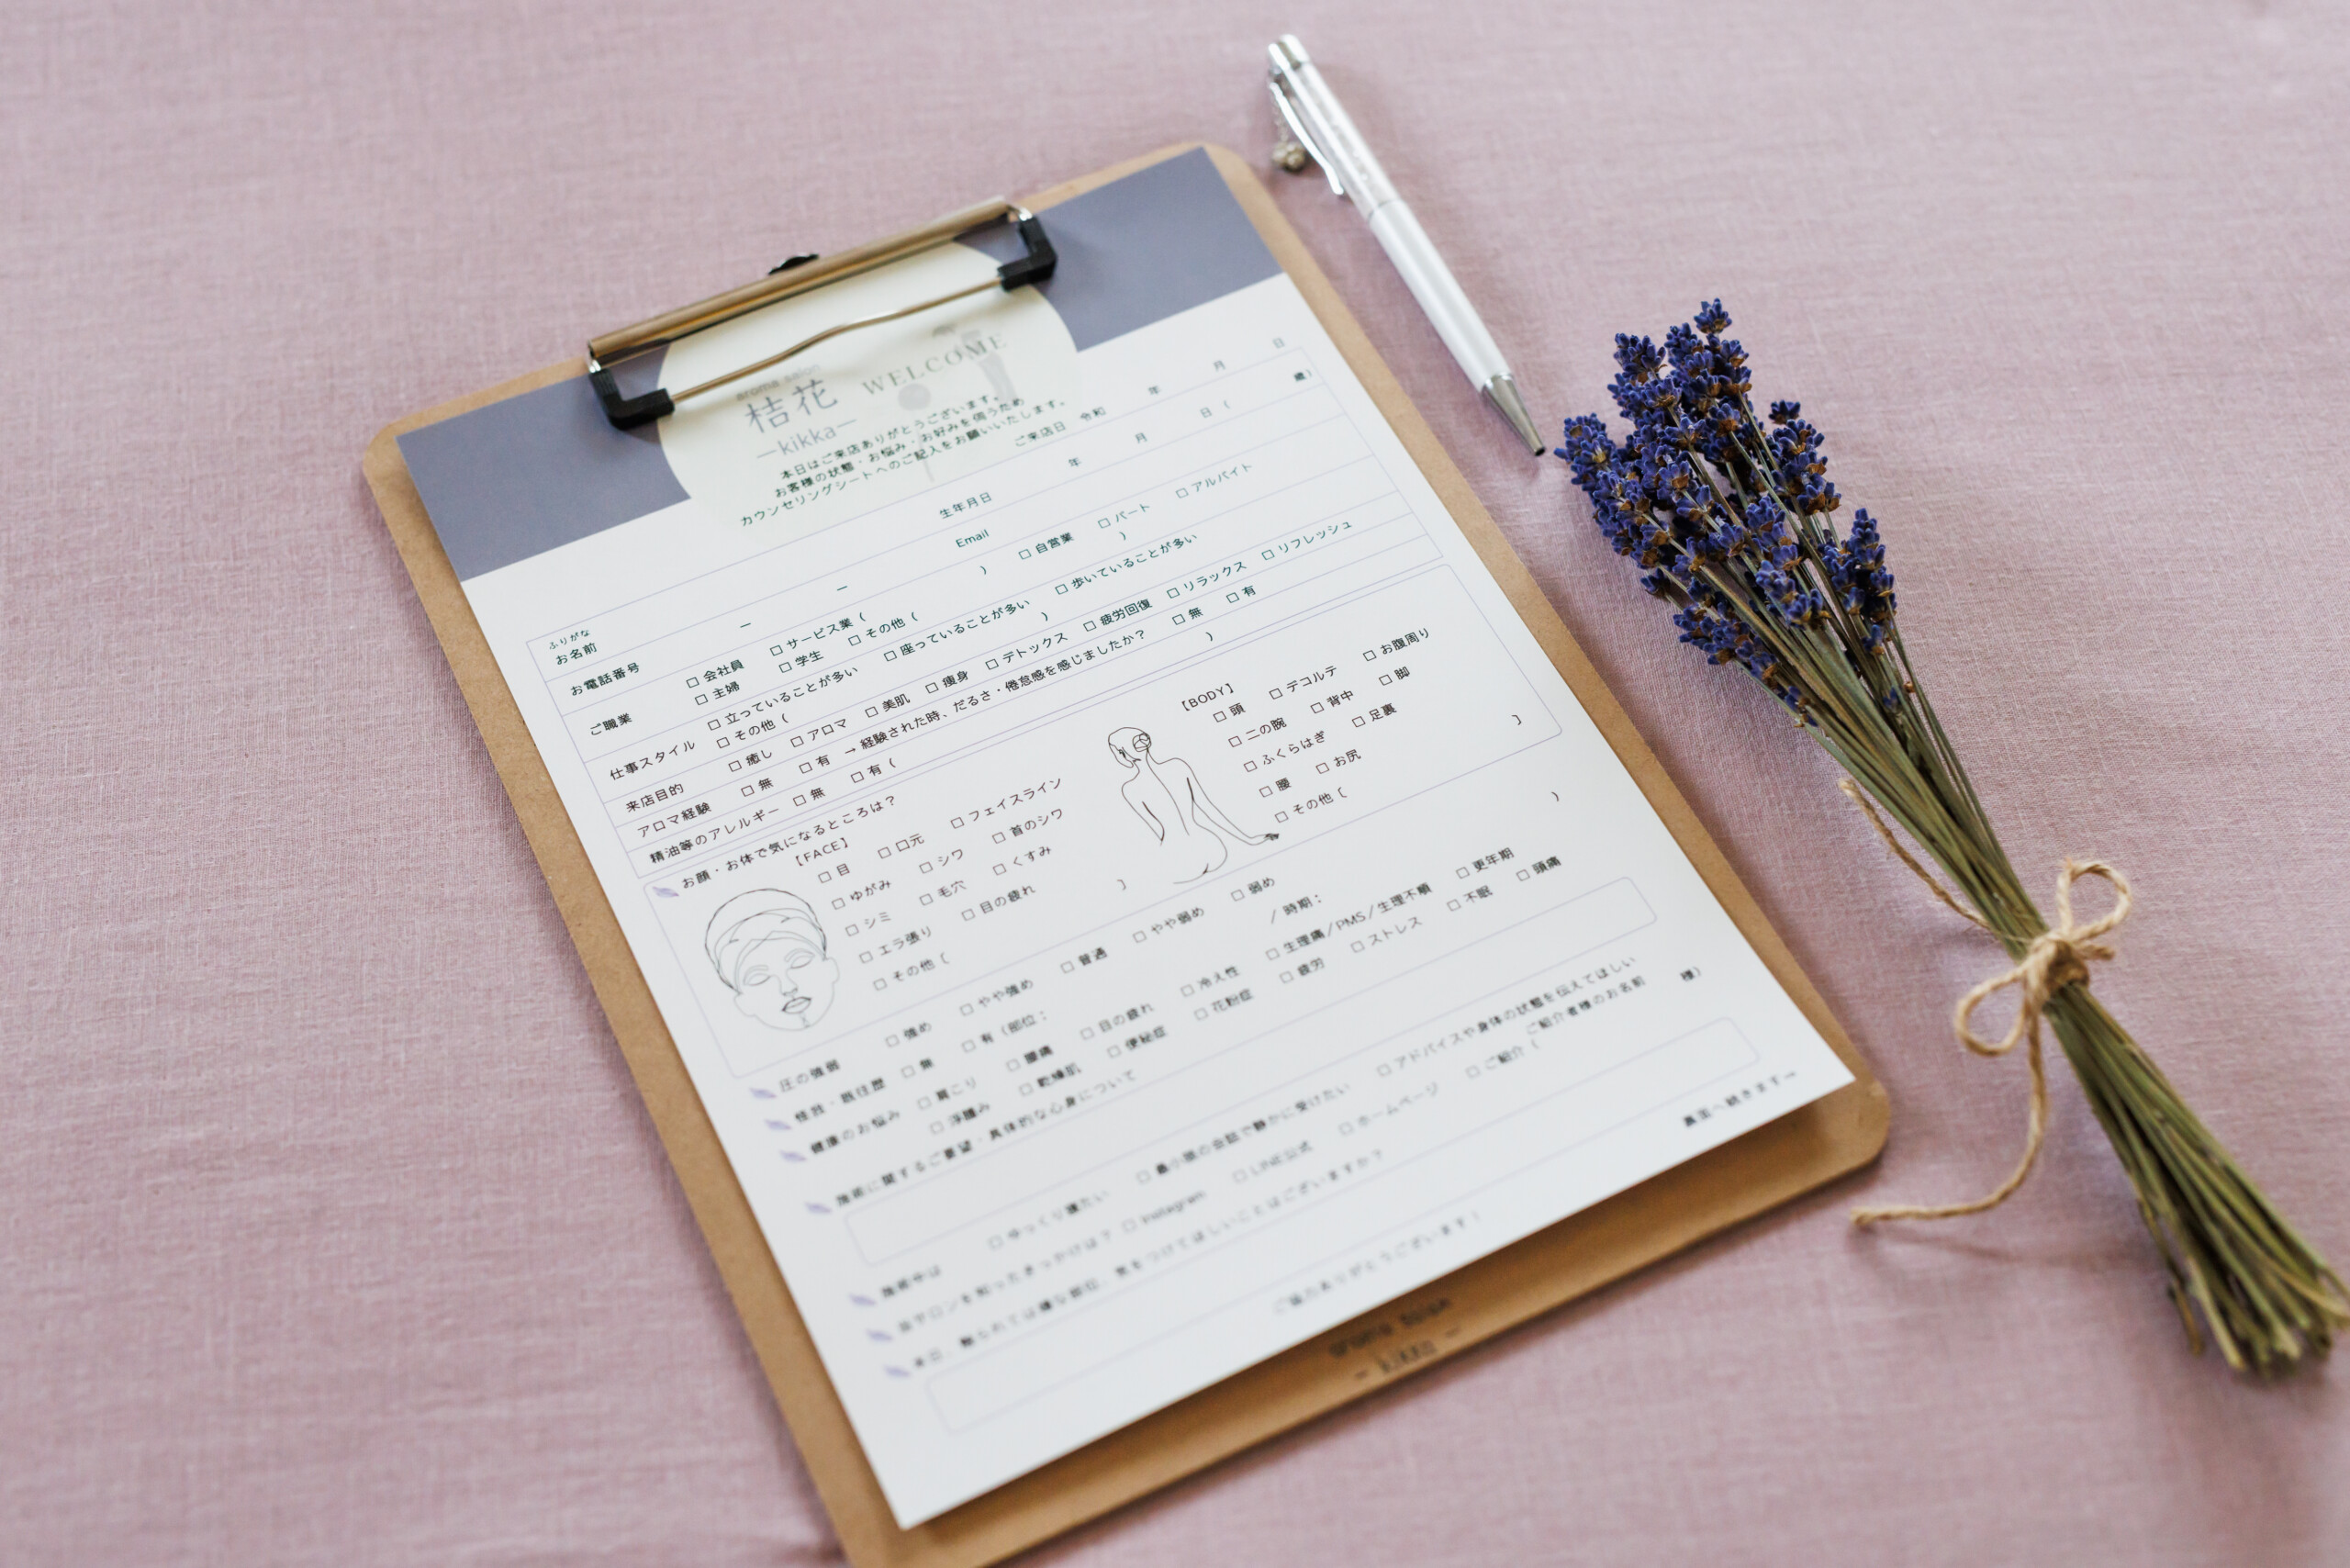 aroma salon
桔花
—kikka—
WELCOME
本日はご来店ありがとうございます。
お客様の状態・お悩み・お好みを伺うため
カウンセリングシートへのご記入をお願いいたします。
ご来店日 令和 年 月 日
ふりがな
お名前 生年月日 年 月 日 ( 歳)
お電話番号 ー ー Email
ご職業 □ 会社員 □ サービス業 ( ) □ 自営業 □ パート □ アルバイト
□ 主婦 □ 学生 □ その他 ( )
仕事スタイル □ 立っていることが多い □ 座っていることが多い □ 歩いていることが多い
□ その他 ( )
来店目的 □ 癒し □ アロマ □ 美肌 □ 痩身 □ デトックス □ 疲労回復 □ リラックス □ リフレッシュ
アロマ経験 □ 無 □ 有 → 経験された時、だるさ・倦怠感を感じましたか？ □ 無 □ 有
精油等のアレルギー □ 無 □ 有 ( )
お顔・お体で気になるところは？
【FACE】
□ 目 □ 口元 □ フェイスライン
□ ゆがみ □ シワ □ 首のシワ
□ シミ □ 毛穴 □ くすみ
□ エラ張り □ 目の疲れ
□ その他 ( )
【BODY】
□ 頭 □ デコルテ □ お腹周り
□ 二の腕 □ 背中 □ 脚
□ ふくらはぎ □ 足裏
□ 腰 □ お尻
□ その他 ( )
圧の強弱 □ 強め □ やや強め □ 普通 □ やや弱め □ 弱め
怪我・既往歴 □ 無 □ 有 (部位： / 時期： )
健康のお悩み □ 肩こり □ 腰痛 □ 目の疲れ □ 冷え性 □ 生理痛/PMS/生理不順 □ 更年期 □ 頭痛
□ 浮腫み □ 乾燥肌 □ 便秘症 □ 花粉症 □ 疲労 □ ストレス □ 不眠
施術に関するご要望・具体的な心身について
施術中は □ ゆっくり寝たい □ 最小限の会話で静かに受けたい □ アドバイスや身体の状態を伝えてほしい
当サロンを知ったきっかけは？ □ Instagram □ LINE公式 □ ホームページ □ ご紹介 ( ご紹介者様のお名前 様)
本日、触られては嫌な部位、気をつけてほしいことはございますか？
ご協力ありがとうございます！
裏面へ続きます→
— kikka —